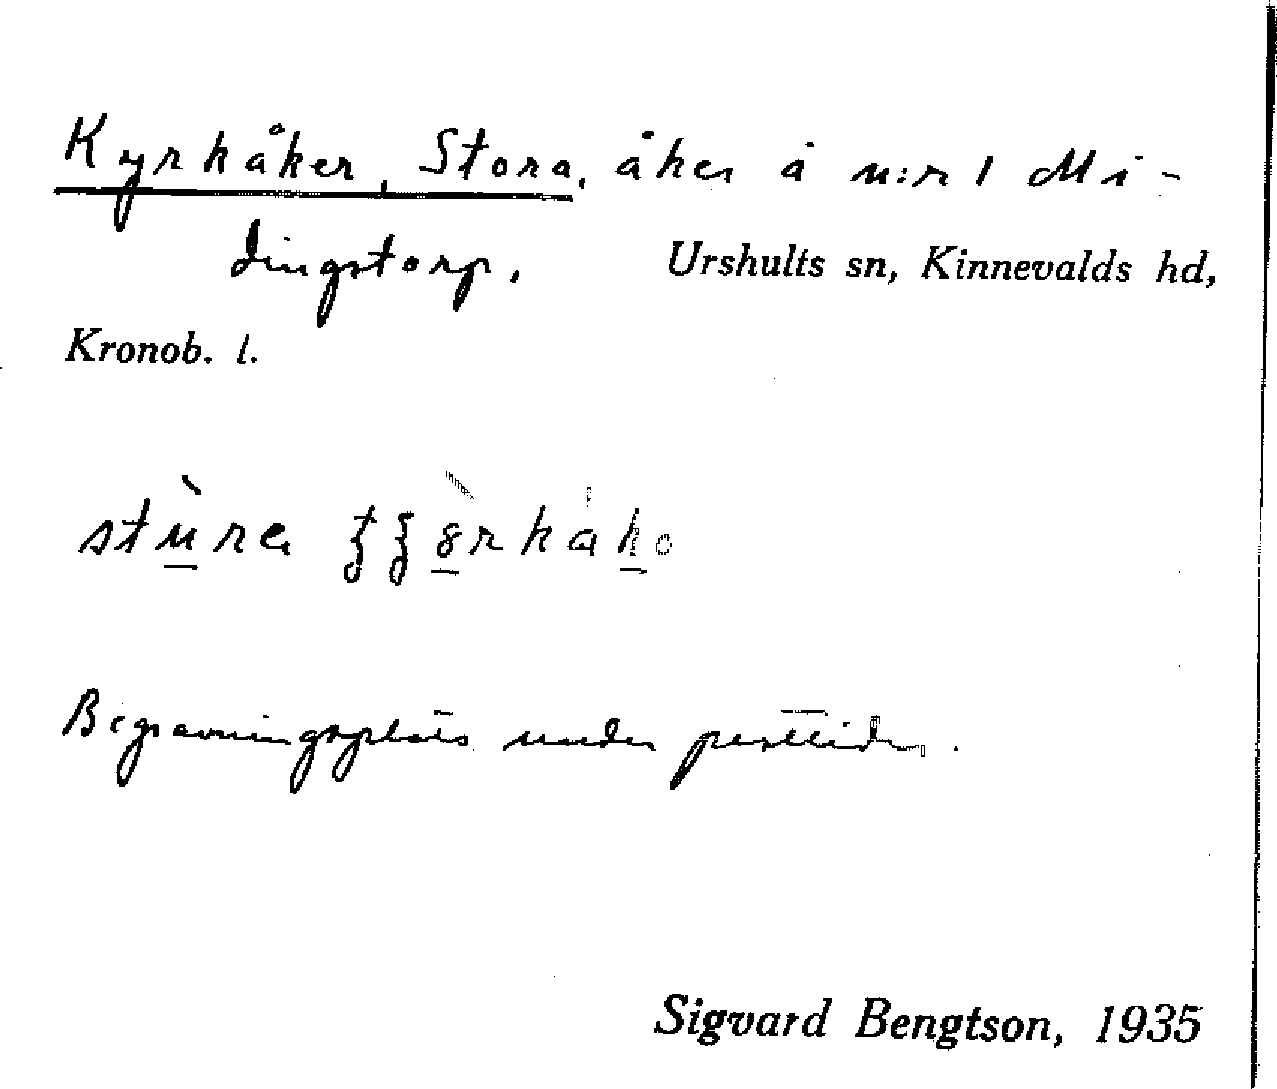 Kyrkåker, Stora, åker å n:r 1 Mi-
dingstorp, Urshults sn, Kinnevalds hd,
Kronob. l.
Begravningsplats under pesttiden.
Sigvard Bengtson, 1935